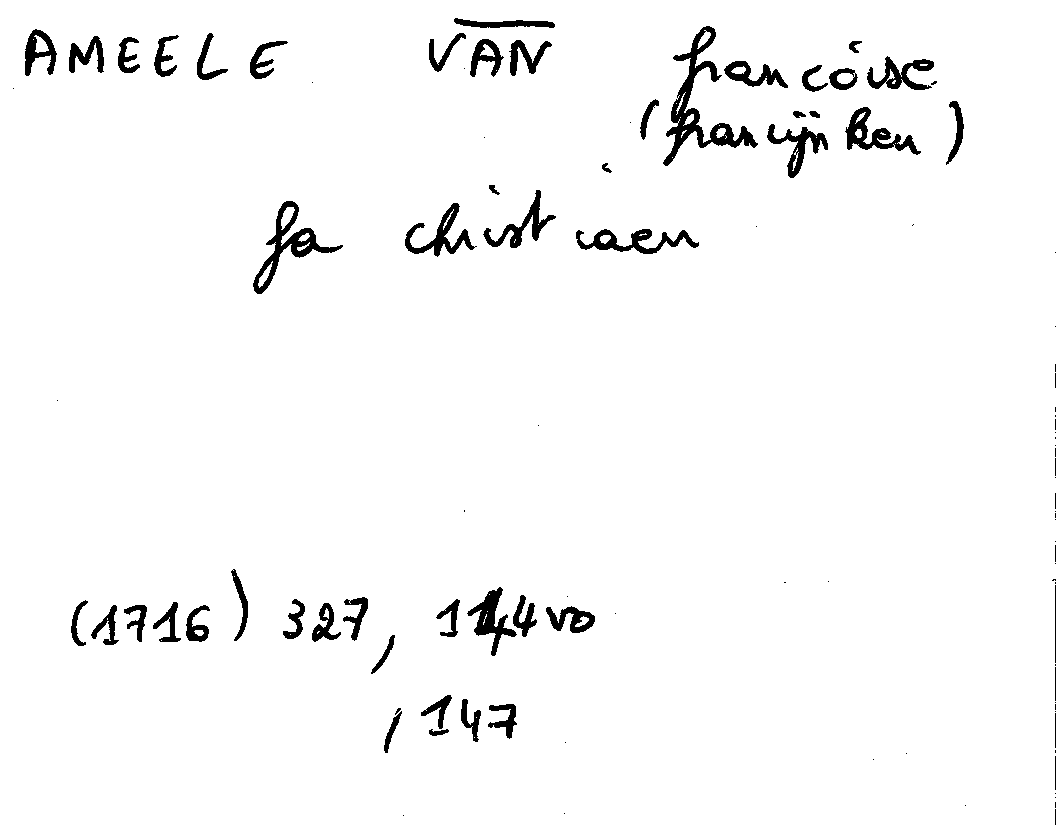 AMEELE VAN francoise
(francijnken)
fa christiaen
(1716) 327, 144vo
, 147